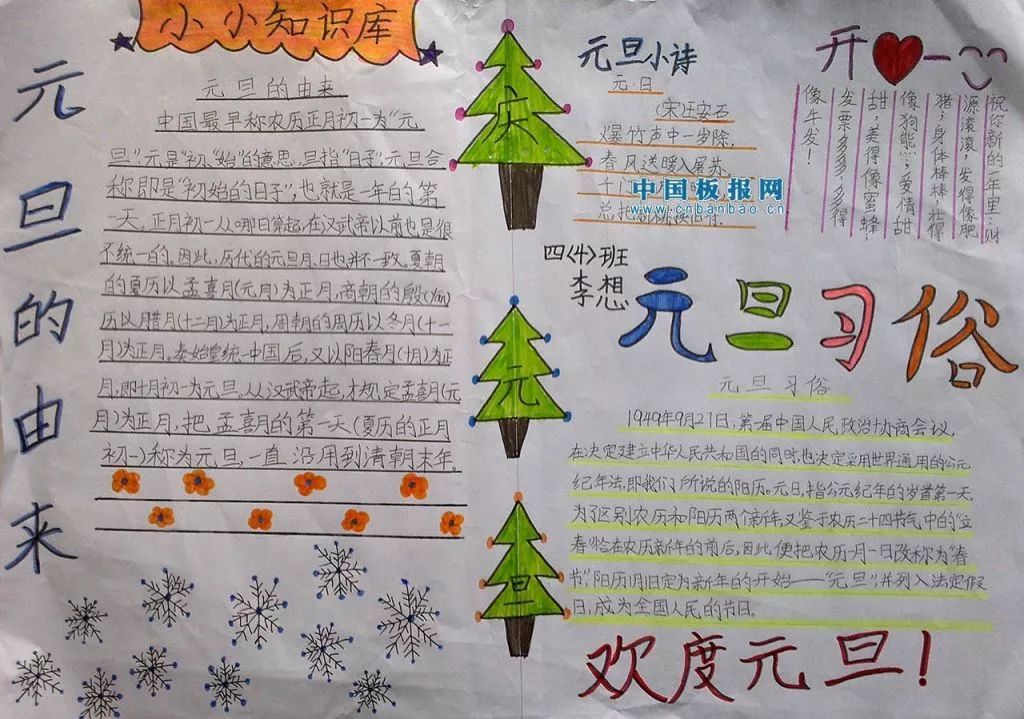 小小知识库
元旦的由来
元旦的由来
中国最早称农历正月初一为“元
旦”元是“初”“始”的意思,旦指“日子”,元旦合
称即是“初始的日子”,也就是一年的第
一天。正月初一从哪日算起,在汉武帝以前也是很
不统一的。因此,历代的元旦月、日也并不一致。夏朝
的夏历以孟喜月(元月)为正月,商朝的殷(yīn)
历以腊月(十二月)为正月,周朝的周历以冬月(十一
月)为正月。秦始皇统一中国后,又以阳春月(十月)为正
月,即十月初一为元旦。从汉武帝起,才规定孟喜月(元
月)为正月,把孟喜月的第一天(夏历的正月
初一)称为元旦,一直沿用到清朝末年。
庆
元
旦
元旦小诗
元日
(宋)王安石
爆竹声中一岁除,
春风送暖入屠苏,
千门
总把 换旧符.
中国板报网
www.cnbanbao.cn
开一
祝你新的一年里:财
源滚滚,发得像肥
猪;身体棒棒,壮得
像狗熊;爱情甜
甜,美得像蜜蜂;
发票多多,多得
像牛发!
四(4)班
李想
元旦习俗
元旦习俗
1949年9月27日,第一届中国人民政治协商会议,
在决定建立中华人民共和国的同时,也决定采用世界通用的公元
纪年法,即我们所说的阳历。元旦,指公元纪年的岁首第一天。
为了区别农历和阳历两个新年,又鉴于农历二十四节气中的“立
春”恰在农历新年的前后,因此便把农历一月一日改称为“春
节”,阳历1月1日定为新年的开始——“元旦”,并列入法定假
日,成为全国人民的节日.
欢度元旦!